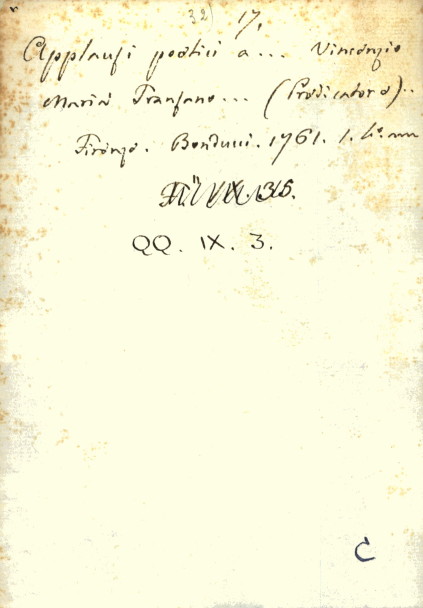 32) 17.
Applausi poetici a... Vincenzio
Maria Tranfano... (Predicatore)..
Firenze. Bonducci. 1761. 1. 4º.
QQ. IX. 3.
C